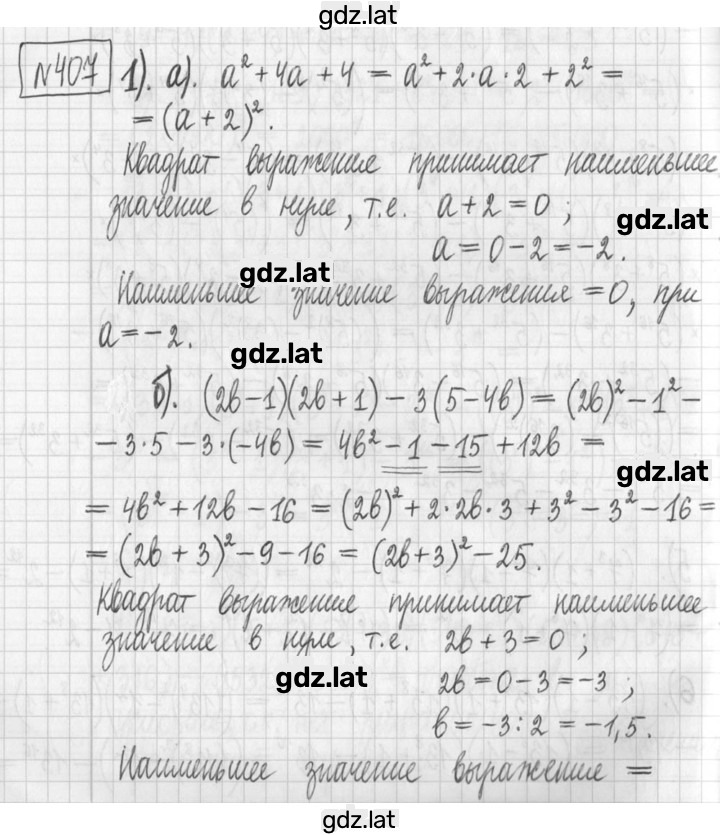 gdz.lat
№407 1). а). a² + 4a + 4 = a² + 2·a·2 + 2² =
= (a + 2)².
Квадрат выражения принимает наименьшее
значение в нуле, т.е. a + 2 = 0 ;
gdz.lat
a = 0 - 2 = -2.
gdz.lat
Наименьшее значение выражения = 0, при
a = -2.
gdz.lat
б). (2b - 1)(2b + 1) - 3(5 - 4b) = (2b)² - 1² -
- 3·5 - 3·(-4b) = 4b² - 1 - 15 + 12b =
gdz.lat
= 4b² + 12b - 16 = (2b)² + 2·2b·3 + 3² - 3² - 16 =
= (2b + 3)² - 9 - 16 = (2b + 3)² - 25.
Квадрат выражения принимает наименьшее
значение в нуле, т.е. 2b + 3 = 0 ;
gdz.lat
2b = 0 - 3 = -3 ;
b = -3 : 2 = -1,5.
Наименьшее значение выражение =
gdz.lat